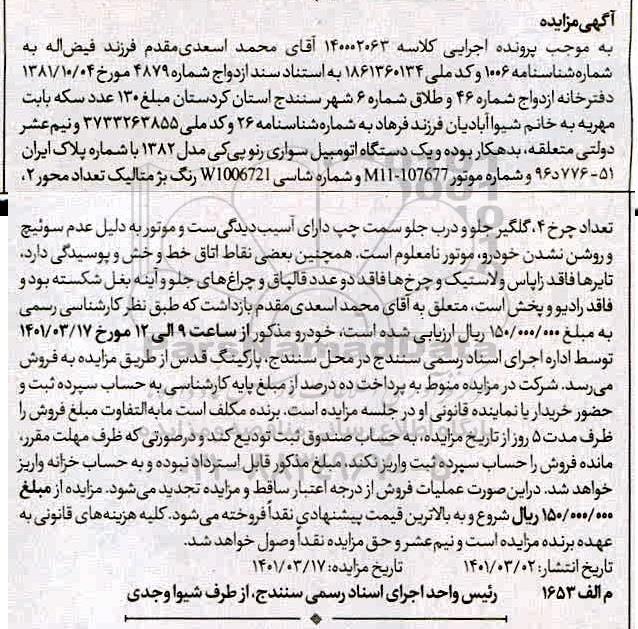 آگهی مزایده
به موجب پرونده اجرایی کلاسه ۱۴۰۰۰۲۰۶۳ آقای محمد اسعدی‌مقدم فرزند فیض‌اله به
شماره شناسنامه ۱۰۰۶ و کد ملی ۱۸۶۱۳۶۰۱۳۴ به استناد سند ازدواج شماره ۴۸۷۹ مورخ ۱۳۸۱/۱۰/۰۴
دفترخانه ازدواج شماره ۴۶ و طلاق شماره ۶ شهر سنندج استان کردستان مبلغ ۱۳۰ عدد سکه بابت
مهریه به خانم شیوا آبادیان فرزند فرهاد به شماره شناسنامه ۲۶ و کد ملی ۳۷۳۳۲۶۳۸۵۵ و نیم‌عشر
دولتی متعلقه، بدهکار بوده و یک دستگاه اتومبیل سواری رنو پی‌کی مدل ۱۳۸۲ با شماره پلاک ایران
۵۱-۷۷۶د۹۶ و شماره موتور M11-107677 و شماره شاسی W1006721 رنگ بژ متالیک تعداد محور ۲،
تعداد چرخ ۴، گلگیر جلو و درب جلو سمت چپ دارای آسیب‌دیدگی‌ست و موتور به دلیل عدم سوئیچ
و روشن نشدن خودرو، موتور نامعلوم است. همچنین بعضی نقاط اتاق خط و خش و پوسیدگی دارد،
تایرها فاقد زاپاس و لاستیک و چرخ‌ها فاقد دو عدد قالپاق و چراغ‌های جلو و آینه بغل شکسته بود و
فاقد رادیو و پخش است، متعلق به آقای محمد اسعدی‌مقدم بازداشت که طبق نظر کارشناسی رسمی
به مبلغ ۱۵۰/۰۰۰/۰۰۰ ریال ارزیابی شده است، خودرو مذکور از ساعت ۹ الی ۱۲ مورخ ۱۴۰۱/۰۳/۱۷
توسط اداره اجرای اسناد رسمی سنندج در محل سنندج، پارکینگ قدس از طریق مزایده به فروش
می‌رسد. شرکت در مزایده منوط به پرداخت ده درصد از مبلغ پایه کارشناسی به حساب سپرده ثبت و
حضور خریدار یا نماینده قانونی او در جلسه مزایده است. برنده مکلف است مابه‌التفاوت مبلغ فروش را
ظرف مدت ۵ روز از تاریخ مزایده، به حساب صندوق ثبت تودیع کند و درصورتی‌که ظرف مهلت مقرر،
مانده فروش را حساب سپرده ثبت واریز نکند، مبلغ مذکور قابل استرداد نبوده و به حساب خزانه واریز
خواهد شد. دراین‌صورت عملیات فروش از درجه اعتبار ساقط و مزایده تجدید می‌شود. مزایده از مبلغ
۱۵۰/۰۰۰/۰۰۰ ریال شروع و به بالاترین قیمت پیشنهادی نقداً فروخته می‌شود. کلیه هزینه‌های قانونی به
عهده برنده مزایده است و نیم‌عشر و حق مزایده نقداً وصول خواهد شد.
تاریخ انتشار: ۱۴۰۱/۰۳/۰۲ تاریخ مزایده: ۱۴۰۱/۰۳/۱۷
م الف ۱۶۵۳ رئیس واحد اجرای اسناد رسمی سنندج، از طرف شیوا وجدی